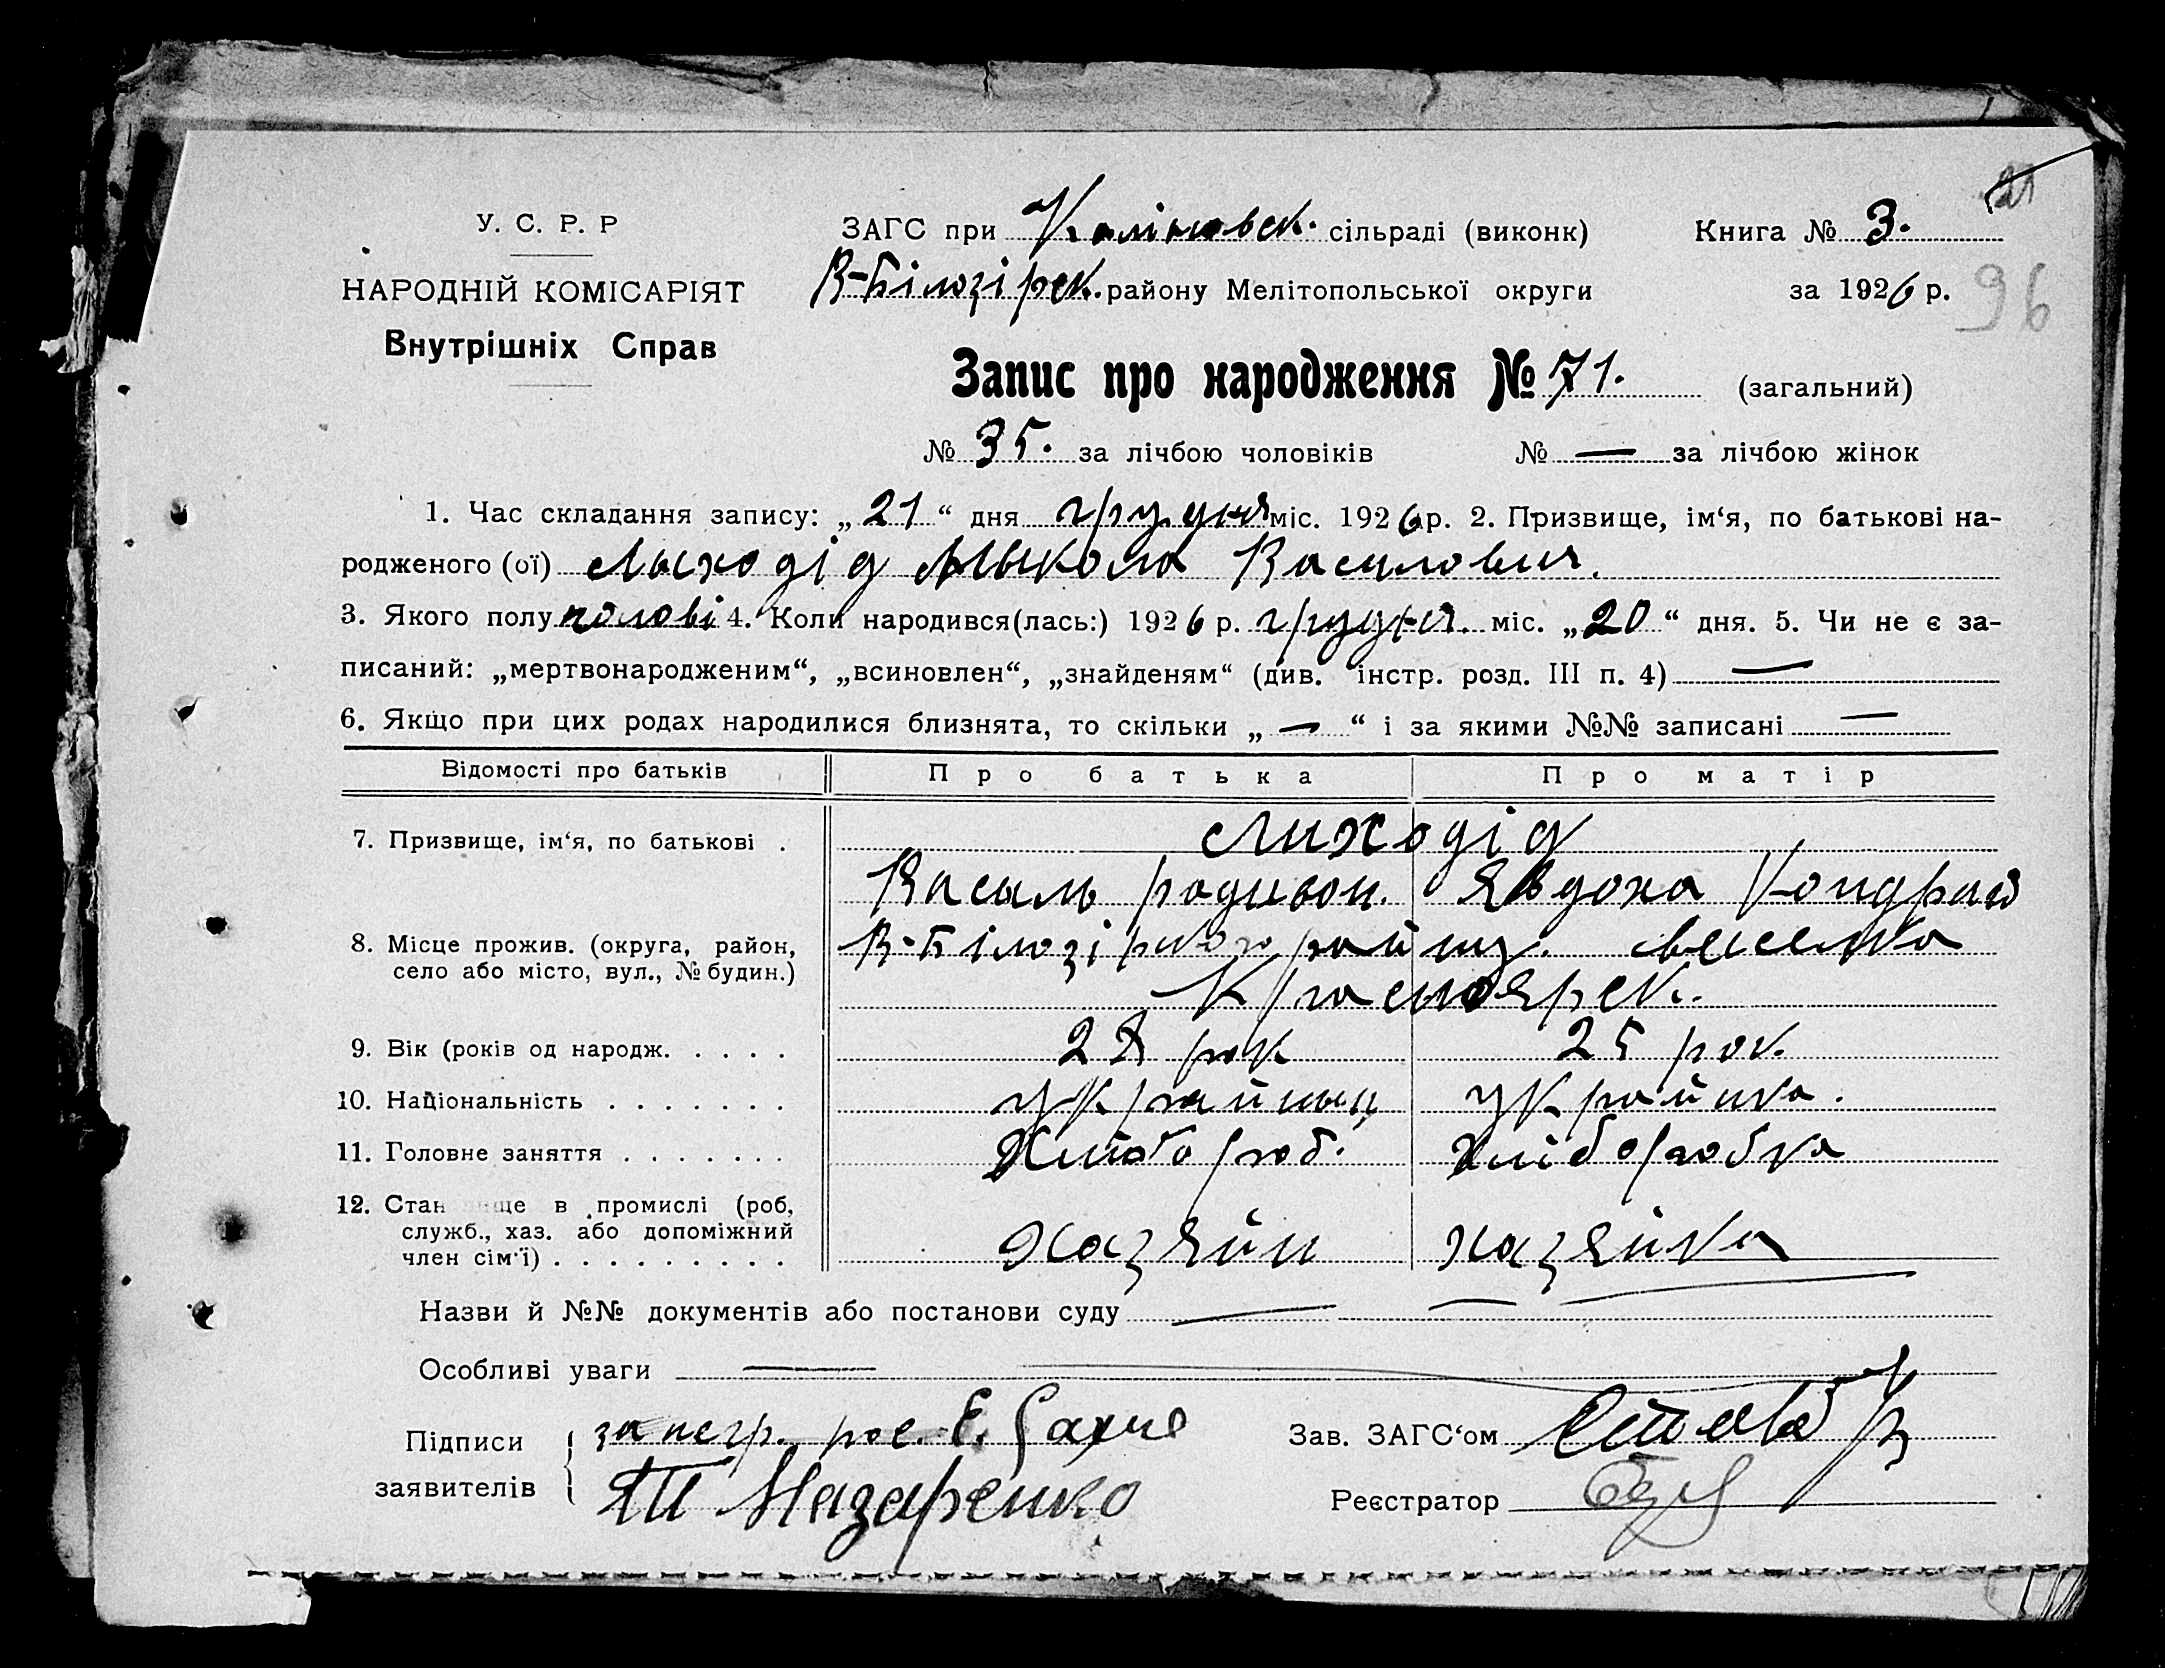 21
У. С. Р. Р
ЗАГС при Каліновск. сільраді (виконк) Книга № 3.
НАРОДНІЙ КОМІСАРІЯТ В-Білозірск. району Мелітопольської округи за 1926 р. 96
Внутрішніх Справ
Запис про народження № 71. (загальний)
№ 35. за лічбою чоловіків № — за лічбою жінок
1. Час складання запису: „21“ дня грудня міс. 1926 р. 2. Призвище, ім‘я, по батькові на-
родженого (ої) Лыходід Мыкола Василович.
3. Якого полу чолові 4. Коли народився(лась:) 1926 р. грудня. міс. „20“ дня. 5. Чи не є за-
писаний: „мертвонародженим“, „всиновлен“, „знайденям“ (див. інстр. розд. III п. 4) —
6. Якщо при цих родах народилися близнята, то скільки „—“ і за якими №№ записані —
Відомості про батьків Про батька Про матір
7. Призвище, ім‘я, по батькові . Лиходід
Васыль родивон. Явдоха Кондрат
8. Місце прожив. (округа, район, село або місто, вул., № будин.) В-Білозірского району.
Красноярск.
9. Вік (років од народж. . . . . 28 рок 25 рок.
10. Національність . . . . . . . украйныц украйнка.
11. Головне заняття . . . . . . . Хлібороб. Хліборобка
12. Стан ще в промислі (роб,
служб., хаз. або допоміжний
член сім‘ї) . . . . . . . . . Хазяйн хазяйка
Назви й №№ документів або постанови суду — —
Особливі уваги —
Підписи за негр. рос. Е. Зав. ЗАГС‘ом
заявителів Назаренко Реєстратор